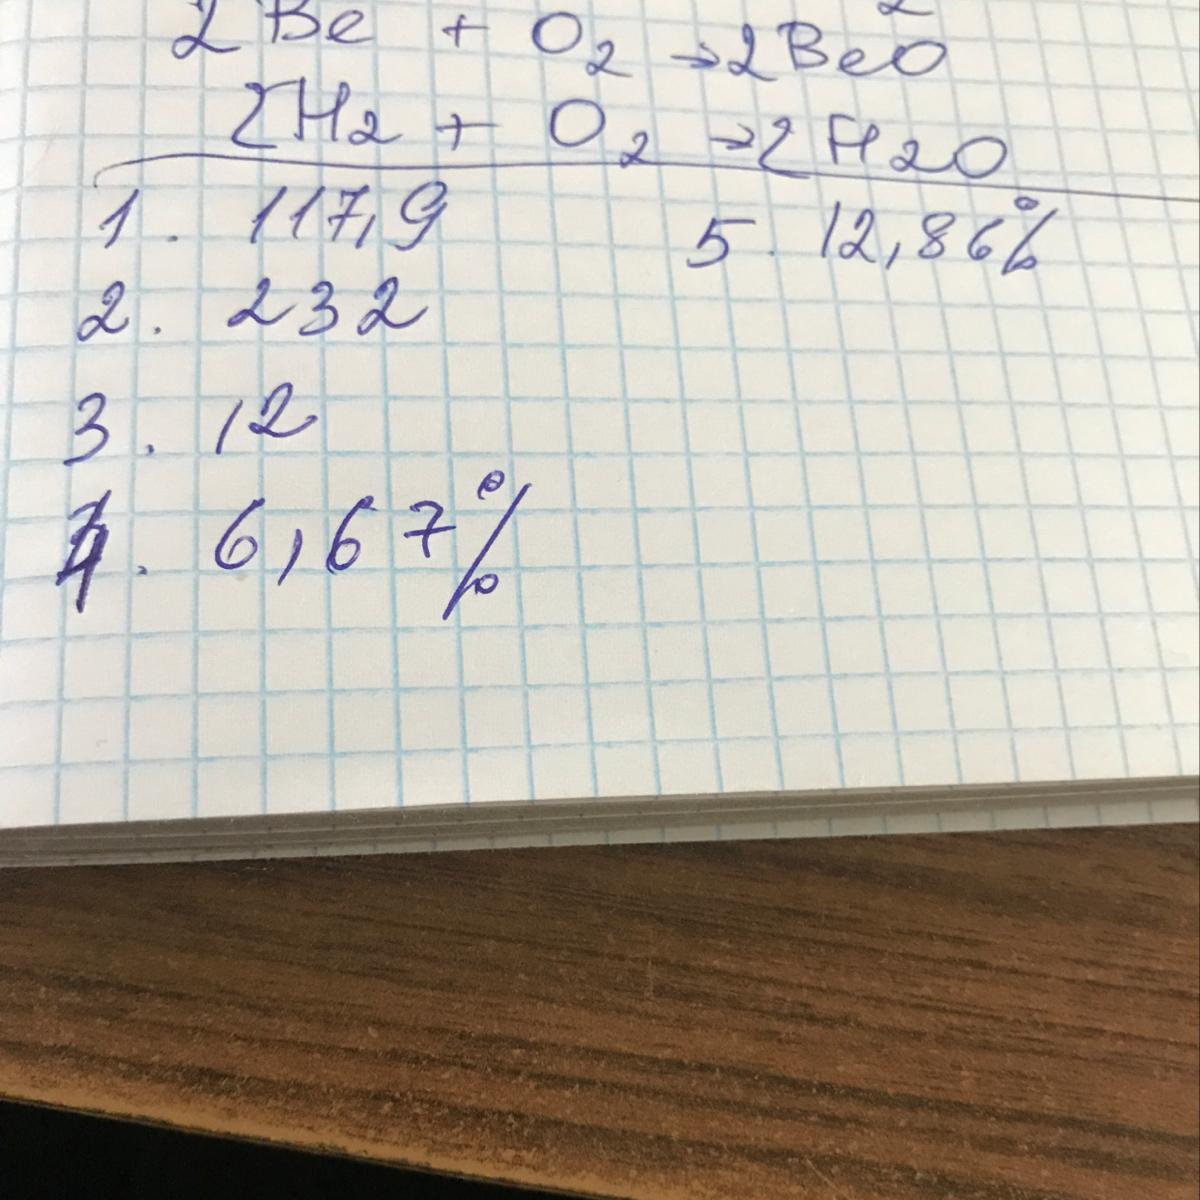 2Be + O2 → 2BeO
2H2 + O2 → 2H2O
1. 117,9
2. 232
3. 12
4. 6,67%
5. 12,86%